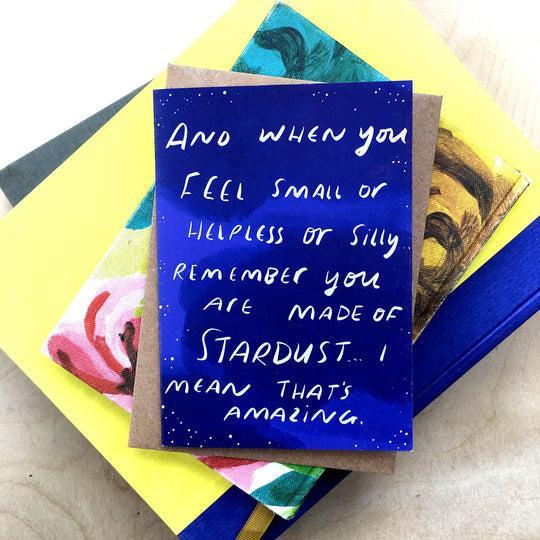 AND WHEN you
FEEL SMALL or
HELPLESS or Silly
REMEMBEr you
ArE MADE OF
STARDUST... I
MEAN THAT'S
AMAZING.